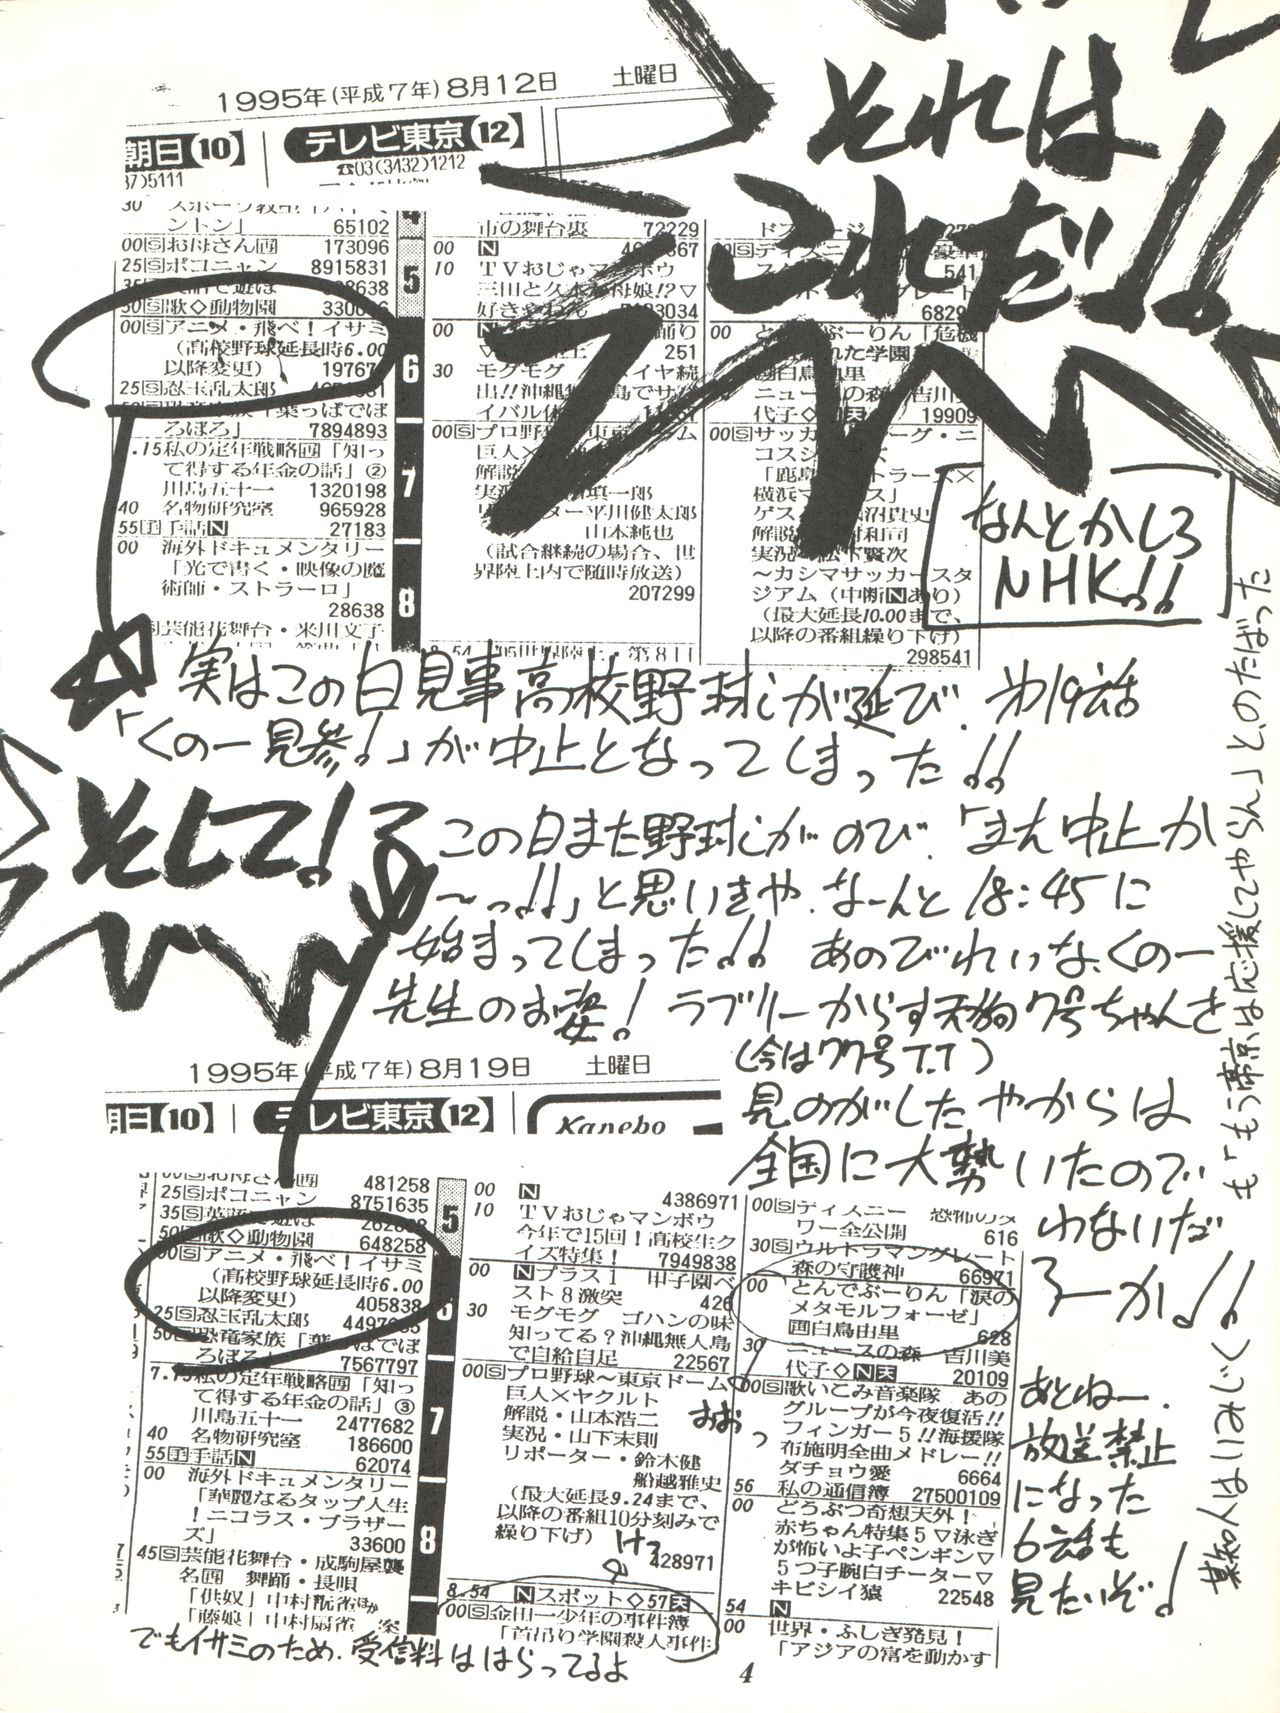 それは
これだ!!
1995年(平成7年)8月12日 土曜日
朝日(10) テレビ東京(12)
37)5111 ☎03(3432)1212
ントン」 65102
00Sお母さん画 173096
25Sポコニャン 8915831
50S歌◇動物園
00Sアニメ・飛べ!イサミ
(高校野球延長時6.00
以降変更)
25S忍玉乱太郎
ろぼろ」 7894893
.15私の定年戦略画「知っ
て得する年金の話」②
川島五十一 1320198
40 名物研究室 965928
55手手話N 27183
00 海外ドキュメンタリー
「光で書く・映像の魔
術師・ストラーロ」
28638
S芸能花舞台・米川文子
4
5
6
7
8
市の舞台裏 72229
00 N
10 TVおじゃマンボウ
三田と久本が母娘!?▽
251
30 モグモグ
出!!沖縄無人島でサバ
00Sプロ野球〜東京ドーム
巨人×
解説
実況
リポーター平川健太郎
山本純也
(試合継続の場合、世
界陸上内で随時放送)
207299
00Sディズニー
541
6829
00 とんでぶーりん「危機
画白鳥由里
ニュースの森 吉川美
代子◇N天 19909
00Sサッカー
「鹿島アントラーズ×
解説
〜カシマサッカースタ
ジアム(中断Nあり)
(最大延長10.00まで、
以降の番組繰り下げ)
298541
なんとかしろ
NHK!!
実はこの日見事高校野球が延び、第19話
「くの一見参!」が中止となってしまった!!
そして!
この日また野球がのび、「また中止か
〜っ!!」と思いきや、なーんと18:45に
始まってしまった!! あのびれいな、くの一
先生のお姿! ラブリーからす天狗7号ちゃんを
(今は77号T.T)
見のがしたやからは
全国に大勢いたので
わないだ
ろーか!!
1995年(平成7年)8月19日 土曜日
朝日(10) テレビ東京(12) Kanebo
00Sお母さん画 481258
25Sポコニャン 8751635
35S英語で遊ぼ
50S歌◇動物園 648258
00Sアニメ・飛べ!イサミ
(高校野球延長時6.00
以降変更) 405838
25S忍玉乱太郎
50S恐竜家族「葉っぱでぼ
ろぼろ」 7567797
7.15私の定年戦略画「知っ
て得する年金の話」③
川島五十一 2477682
40 名物研究室 186600
55手手話N 62074
00 海外ドキュメンタリー
「華麗なるタップ人生
!ニコラス・ブラザー
ズ」 33600
45S芸能花舞台・成駒屋襲
名画 舞踊・長唄
「供奴」中村翫雀ほか
「藤娘」中村扇雀
5
6
7
8
00 N 4386971
10 TVおじゃマンボウ
今年で15回!高校生ク
イズ特集! 7949838
00 Nプラス1 甲子園ベ
スト8激突 426
30 モグモグ ゴハンの味
知ってる?沖縄無人島
で自給自足 22567
00Sプロ野球〜東京ドーム
巨人×ヤクルト
解説・山本浩二
実況・山下末則
リポーター・鈴木健
船越雅史
(最大延長9.24まで、
以降の番組10分刻みで
繰り下げ)
428971
8.54 Nスポット◇57天
00S金田一少年の事件簿
「首吊り学園殺人事件
00Sディズニー 恐怖のタ
ワー全公開 616
30Sウルトラマングレート
森の守護神 66971
00 とんでぶーりん「涙の
メタモルフォーゼ」
画白鳥由里 628
30 ニュースの森 吉川美
代子◇N天 20109
00S歌いこみ音楽隊 あの
グループが今夜復活!!
フィンガー5!!海援隊
布施明全曲メドレー!!
ダチョウ愛 6664
56 私の通信簿 27500109
00 どうぶつ奇想天外!
赤ちゃん特集5▽泳ぎ
が怖いよ子ペンギン▽
5つ子腕白チーター▽
キビシイ猿 22548
54 N
00 世界・ふしぎ発見!
「アジアの富を動かす
おおっ
けっ
あとねー、
放送禁止
になった
6話も
見たいぞ!
某知人はいみじく
も「もう帝京は応援してやらん」と、のたばった
でもイサミのため、受信料ははらってるよ
4